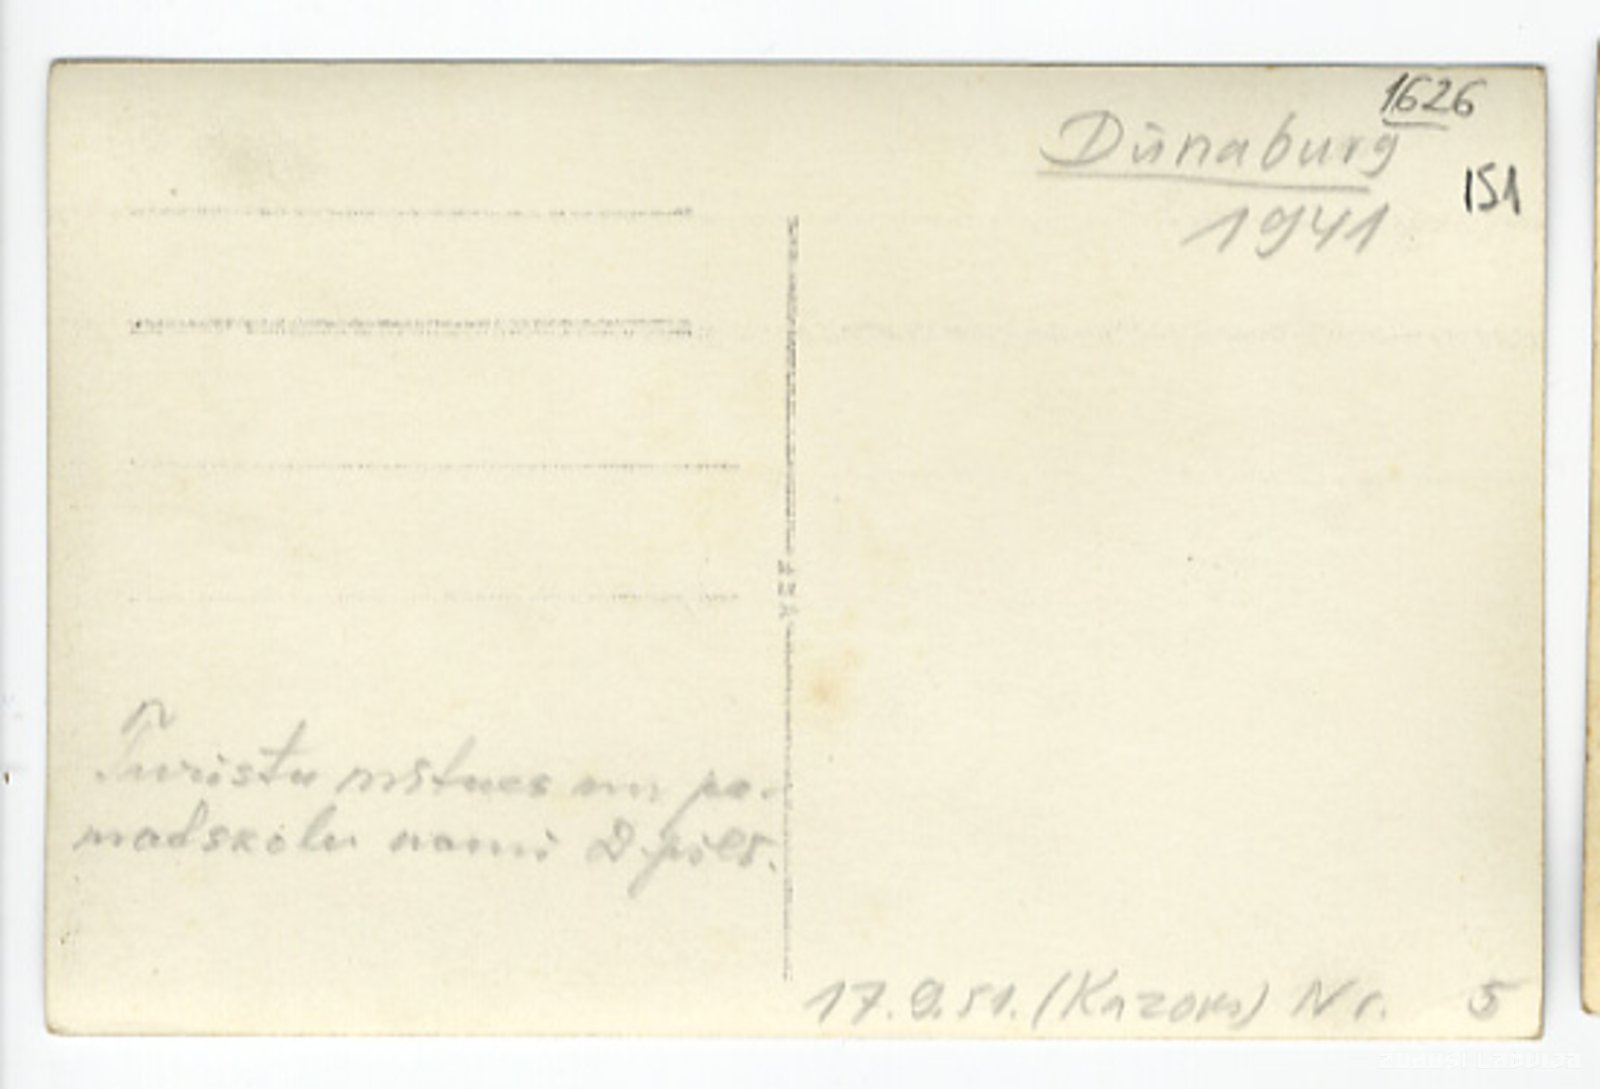 1626
Dünaburg
1941
151
Turistu mītnes un pa-
madskolu nami D.pils.
17.9.51. (Kazoks) Nr. 5
zudusi Latvija